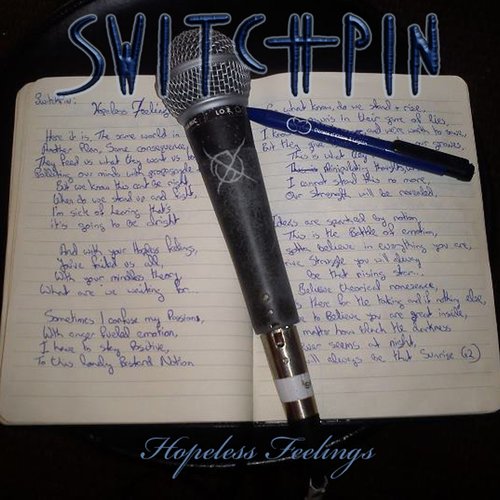 SWITCHPIN
Switchpin:
Hopeless Feelings
Here it is, The same world in
Another Plan, Same consequence,
They feed us what they want us to
Polluting our minds with propaganda
But we know this cant be right
When do we stand up and fight,
I'm sick of hearing that's
it's going to be alright
And with your Hopeless feelings,
You've failed us all,
With your mindless theory,
What are we waiting for...
Sometimes I confuse my Passions,
With anger fueled emotion,
I have to stay Positive,
To this lonely Bastard Nation
what know, do we stand or rise,
in their game of lies,
I know and we're worth to save,
But they give our graves,
This is what they
Manipulating thoughts,
I cannot stand this no more,
Our Strength will be revealed.
Ideas are sparked by notion,
This is the Battle of emotion,
gotta believe in everything you are,
Struggle you will always
be that rising star...
Believe theorical nonesence,
is there for the taking and if nothing else,
to Believe you are great inside,
matter how black the darkness
ever seems at night,
will always be that Sunrise (x2)
Hopeless Feelings